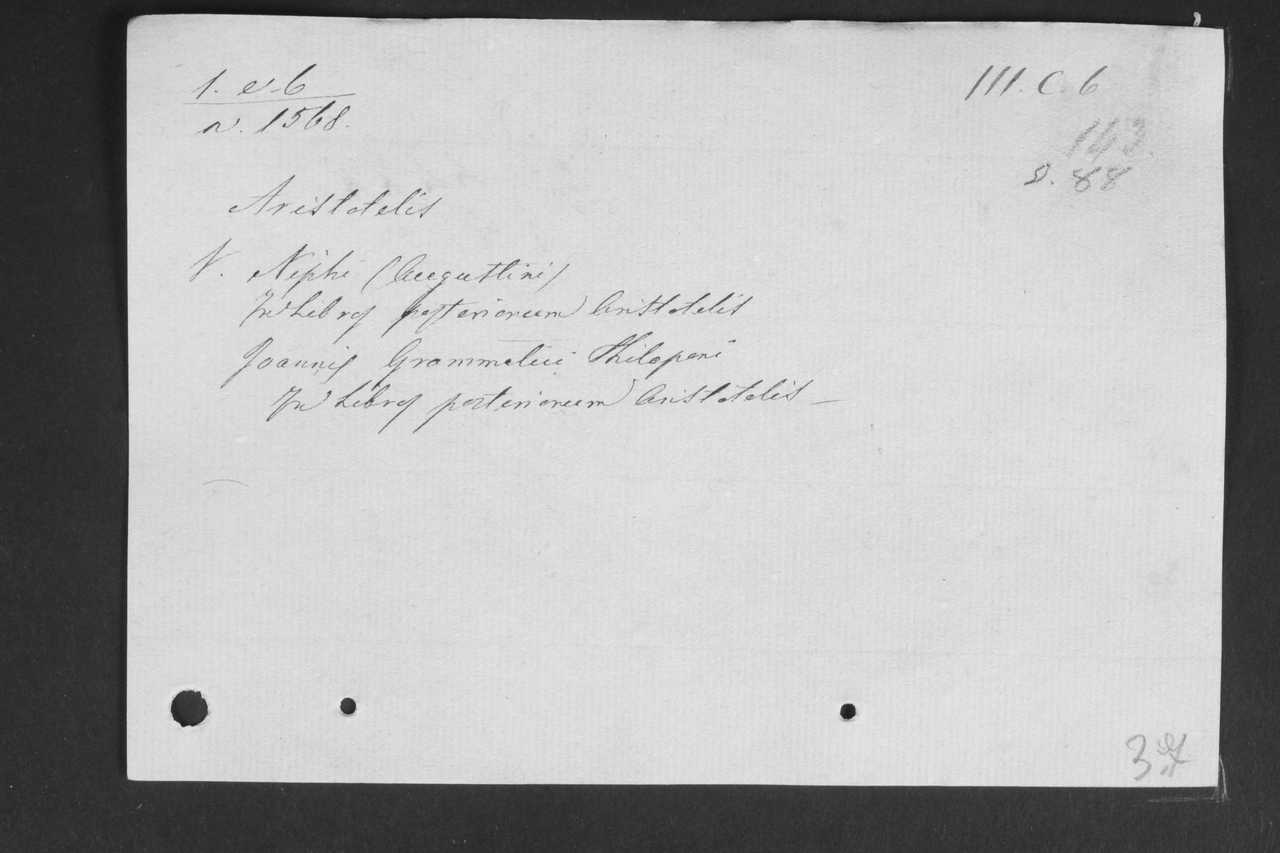 1. e. 6
n. 1568.
III. C. 6
143
S. 88
Aristotelis
V. Niphi (Augustini)
In Libros posteriorum Aristotelis
Joannis Grammatici Philoponi
In Libros posteriorum Aristotelis —